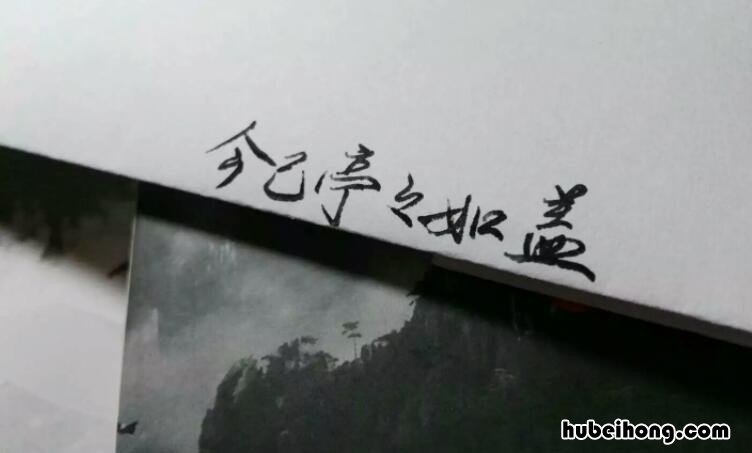 今已亭亭如盖
hubeihong.com